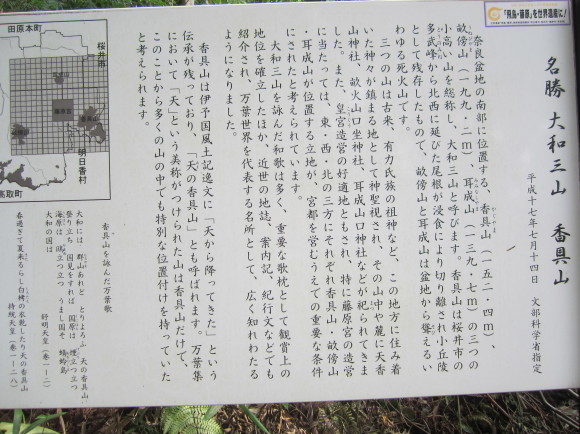 「飛鳥・藤原」を世界遺産に！
名勝　大和三山　香具山
平成十七年七月十四日　文部科学省指定
奈良盆地の南部に位置する、香具山（一五二・四ｍ）、
畝傍山（一九九・二ｍ）、耳成山（一三九・七ｍ）の三つの
小高い山を総称し、大和三山と呼びます。香具山は桜井市の
多武峰から北西に延びた尾根が浸食により切り離され小丘陵
として残存したもので、畝傍山と耳成山は盆地から聳えるい
わゆる死火山です。
三つの山は古来、有力氏族の祖神など、この地方に住み着
いた神々が鎮まる地として神聖視され、その山中や麓に天香
山神社、畝火山口坐神社、耳成山口神社などが祀られてきま
した。また、皇宮造営の好適地ともされ、特に藤原宮の造営
に当たっては、東・西・北の三方にそれぞれ香具山・畝傍山
・耳成山が位置する立地が、宮都を営むうえでの重要な条件
にされたと考えられています。
大和三山を詠んだ和歌は多く、重要な歌枕として観賞上の
地位を確立したほか、近世の地誌、案内記、紀行文などでも
紹介され、万葉世界を代表する名所として、広く知れわたる
ようになりました。
香具山は伊予国風土記逸文に「天から降ってきた」という
伝承が残っており、「天の香具山」とも呼ばれます。万葉集
において「天」という美称がつけられた山は香具山だけで、
このことから多くの山の中でも特別な位置付けを持っていた
と考えられます。
香具山を詠んだ万葉歌
大和には　群山あれど　とりよろふ　天の香具山
登り立ち　国見をすれば　国原は　煙立つ立つ
海原は　鴎立つ立つ　うまし国そ　蜻蛉島
大和の国は
舒明天皇（巻一ー二）
春過ぎて夏来るらし白栲の衣乾したり天の香具山
持統天皇（巻一ー二八）
田原本町
桜井市
藤原宮
香具山
明日香村
高取町